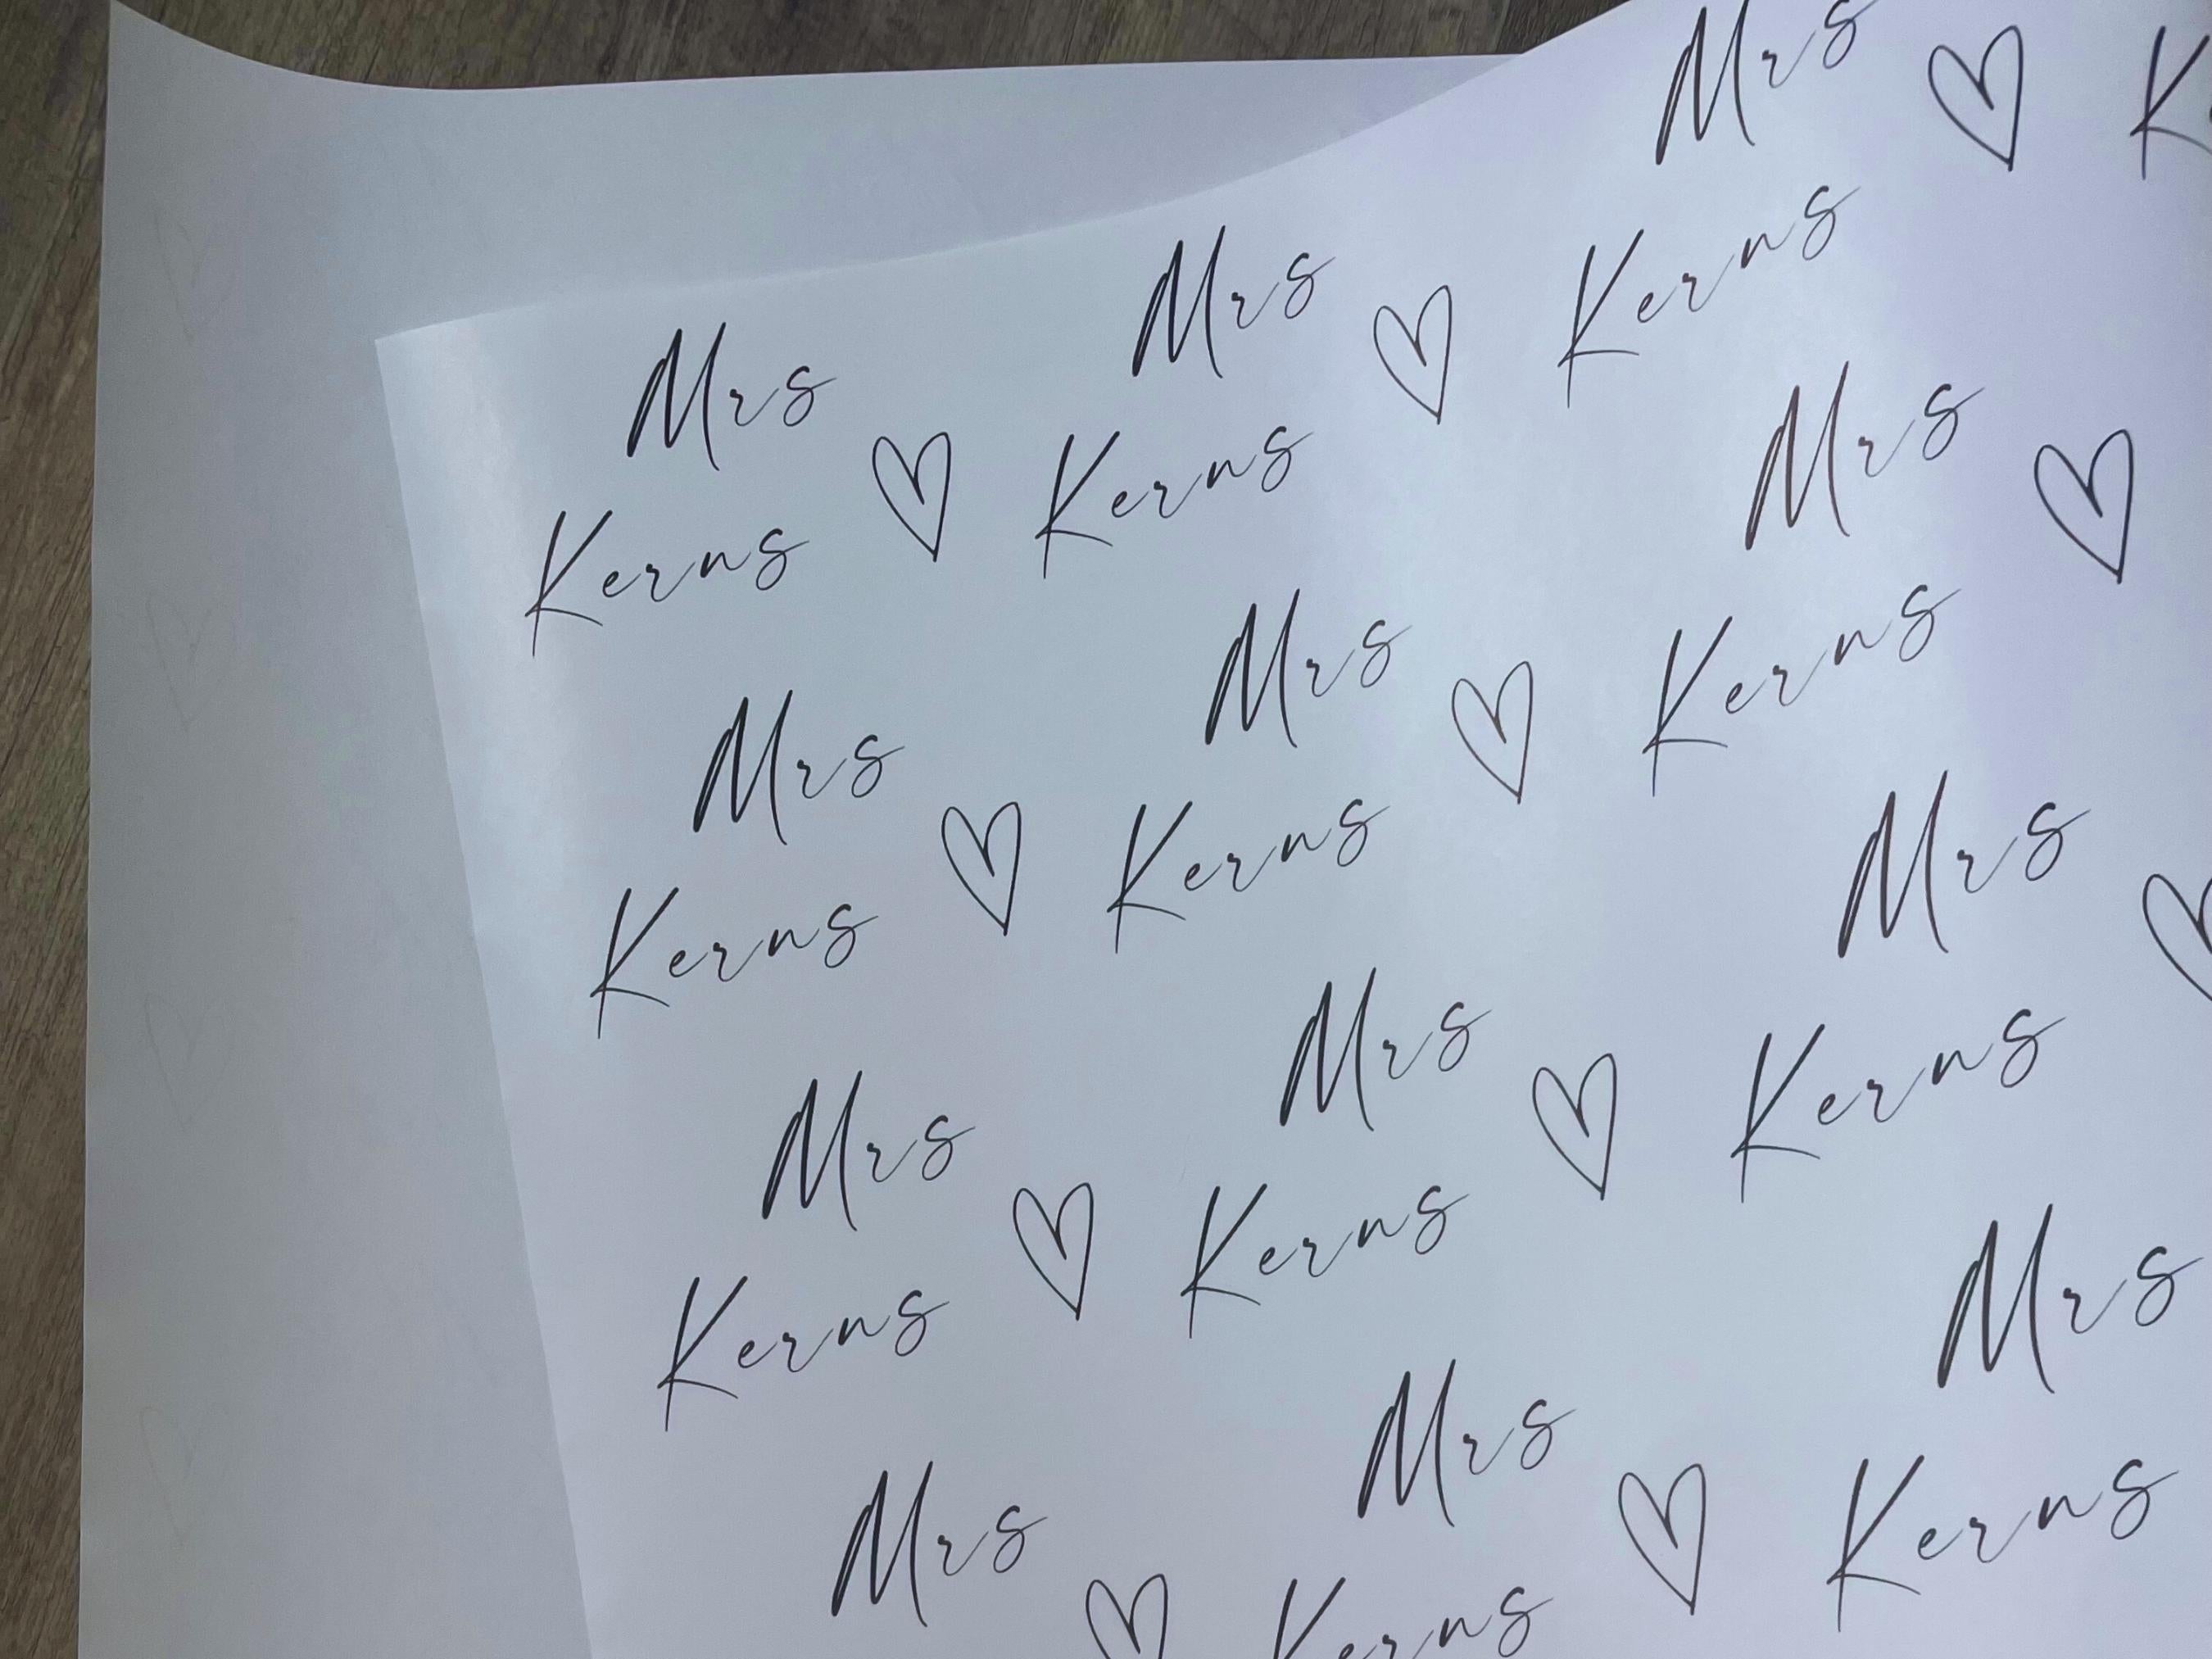 Mrs
Kerns
Mrs
Kerns
Mrs
Kerns
Mrs
Kerns
Mrs
Kerns
Mrs
Kerns
Mrs
Kerns
Mrs
Kerns
Mrs
Kerns
Mrs
Mrs
Kerns
Mrs
Kerns